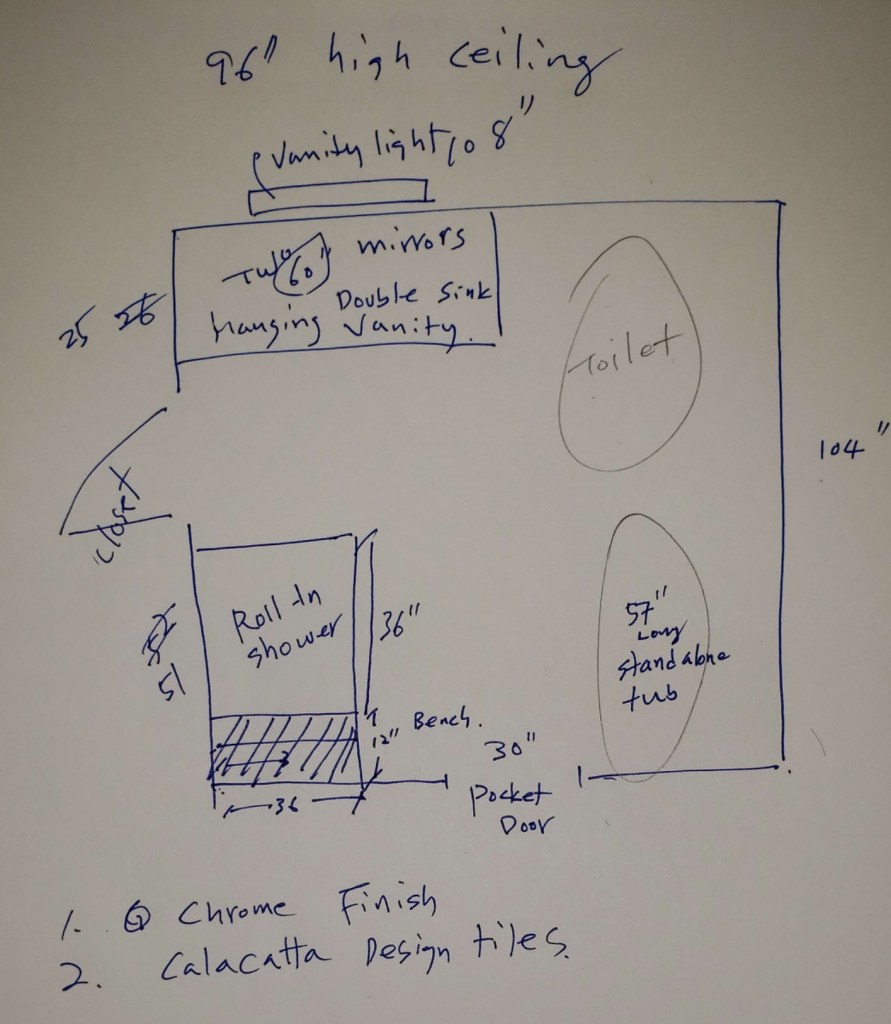 96" high ceiling
vanity light 8"
Two mirrors
60"
Double Sink
hanging vanity.
25 26
Toilet
104"
closet
Roll In
shower
36"
52
51
57"
Long
standalone
tub
12" Bench.
30"
Pocket
Door
36
1. Chrome Finish
2. Calacatta Design tiles.